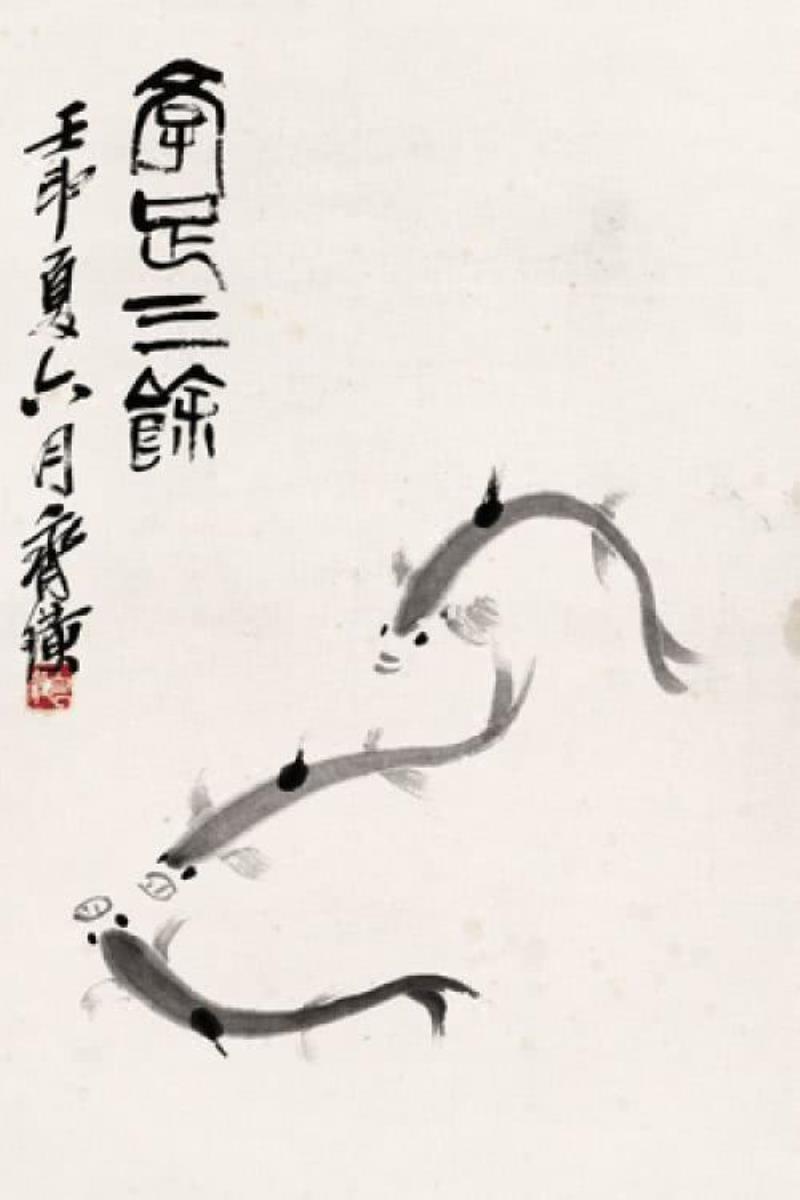 學足三餘
壬申夏六月齊璜